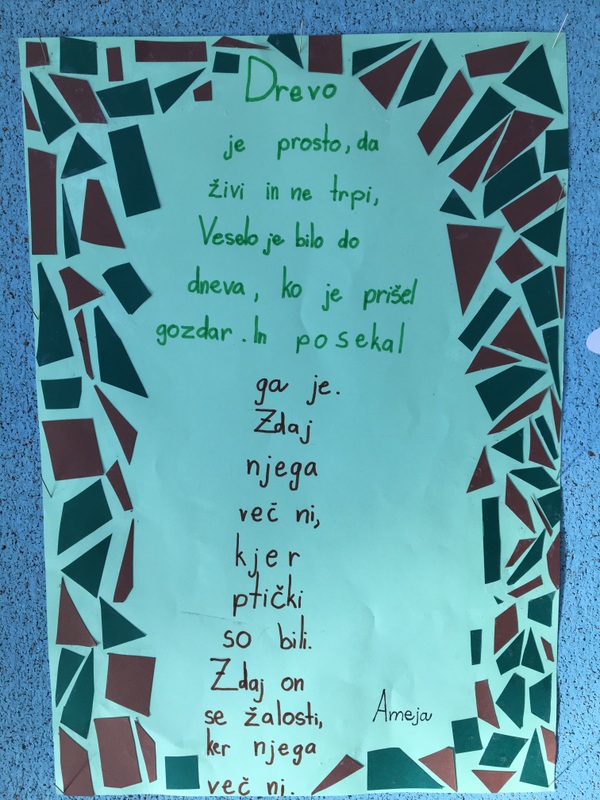 Drevo
je prosto, da
živi in ne trpi,
Veselo je bilo do
dneva, ko je prišel
gozdar. In posekal
ga je.
Zdaj
njega
več ni,
kjer
ptički
so bili.
Zdaj on
se žalosti,
ker njega
več ni.
Ameja